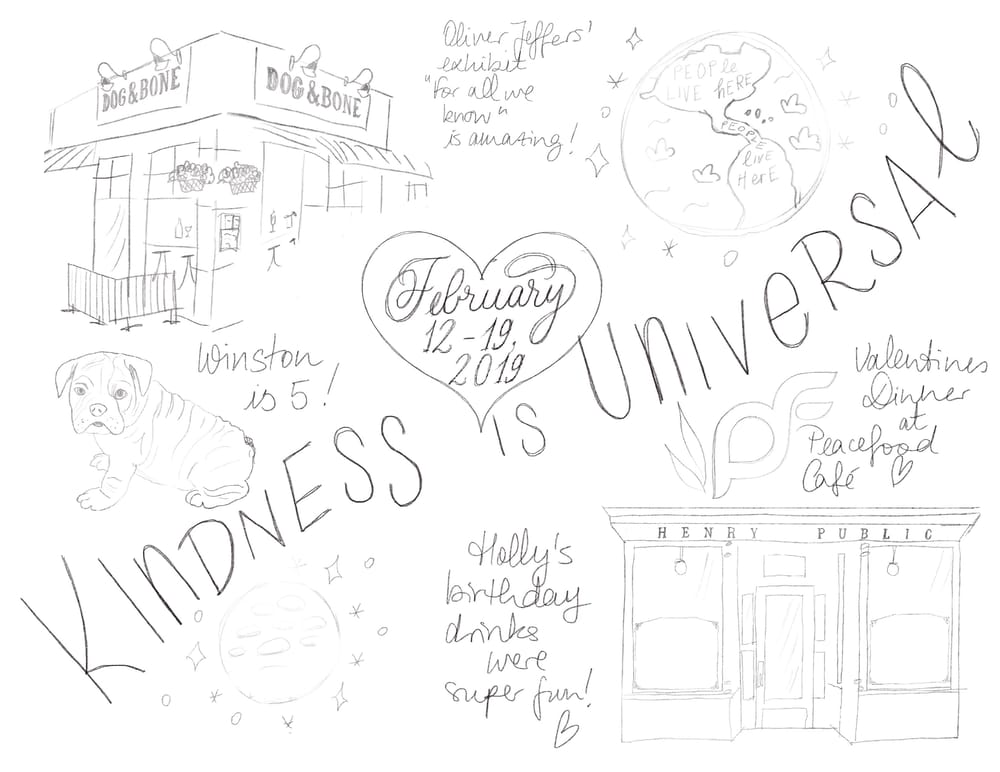 DOG & BONE
DOG & BONE
Oliver Jeffers'
exhibit
"for all we
know"
is amazing!
PEOPLE
LIVE HERE
PEOPLE
LIVE
HERE
February
12-19,
2019
Winston
is 5!
KINDNESS IS UNIVERSAL
Valentines
Dinner
at
Peacefood
Café
PF
Holly's
birthday
drinks
were
super fun!
HENRY PUBLIC